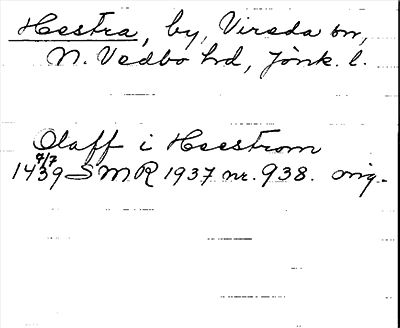 Hestra, by, Vireda sn,
N. Vedbo hd, Jönk. l.
Olaff i Hæstrom
4/7
1439 SMR 1937 nr. 938. orig.